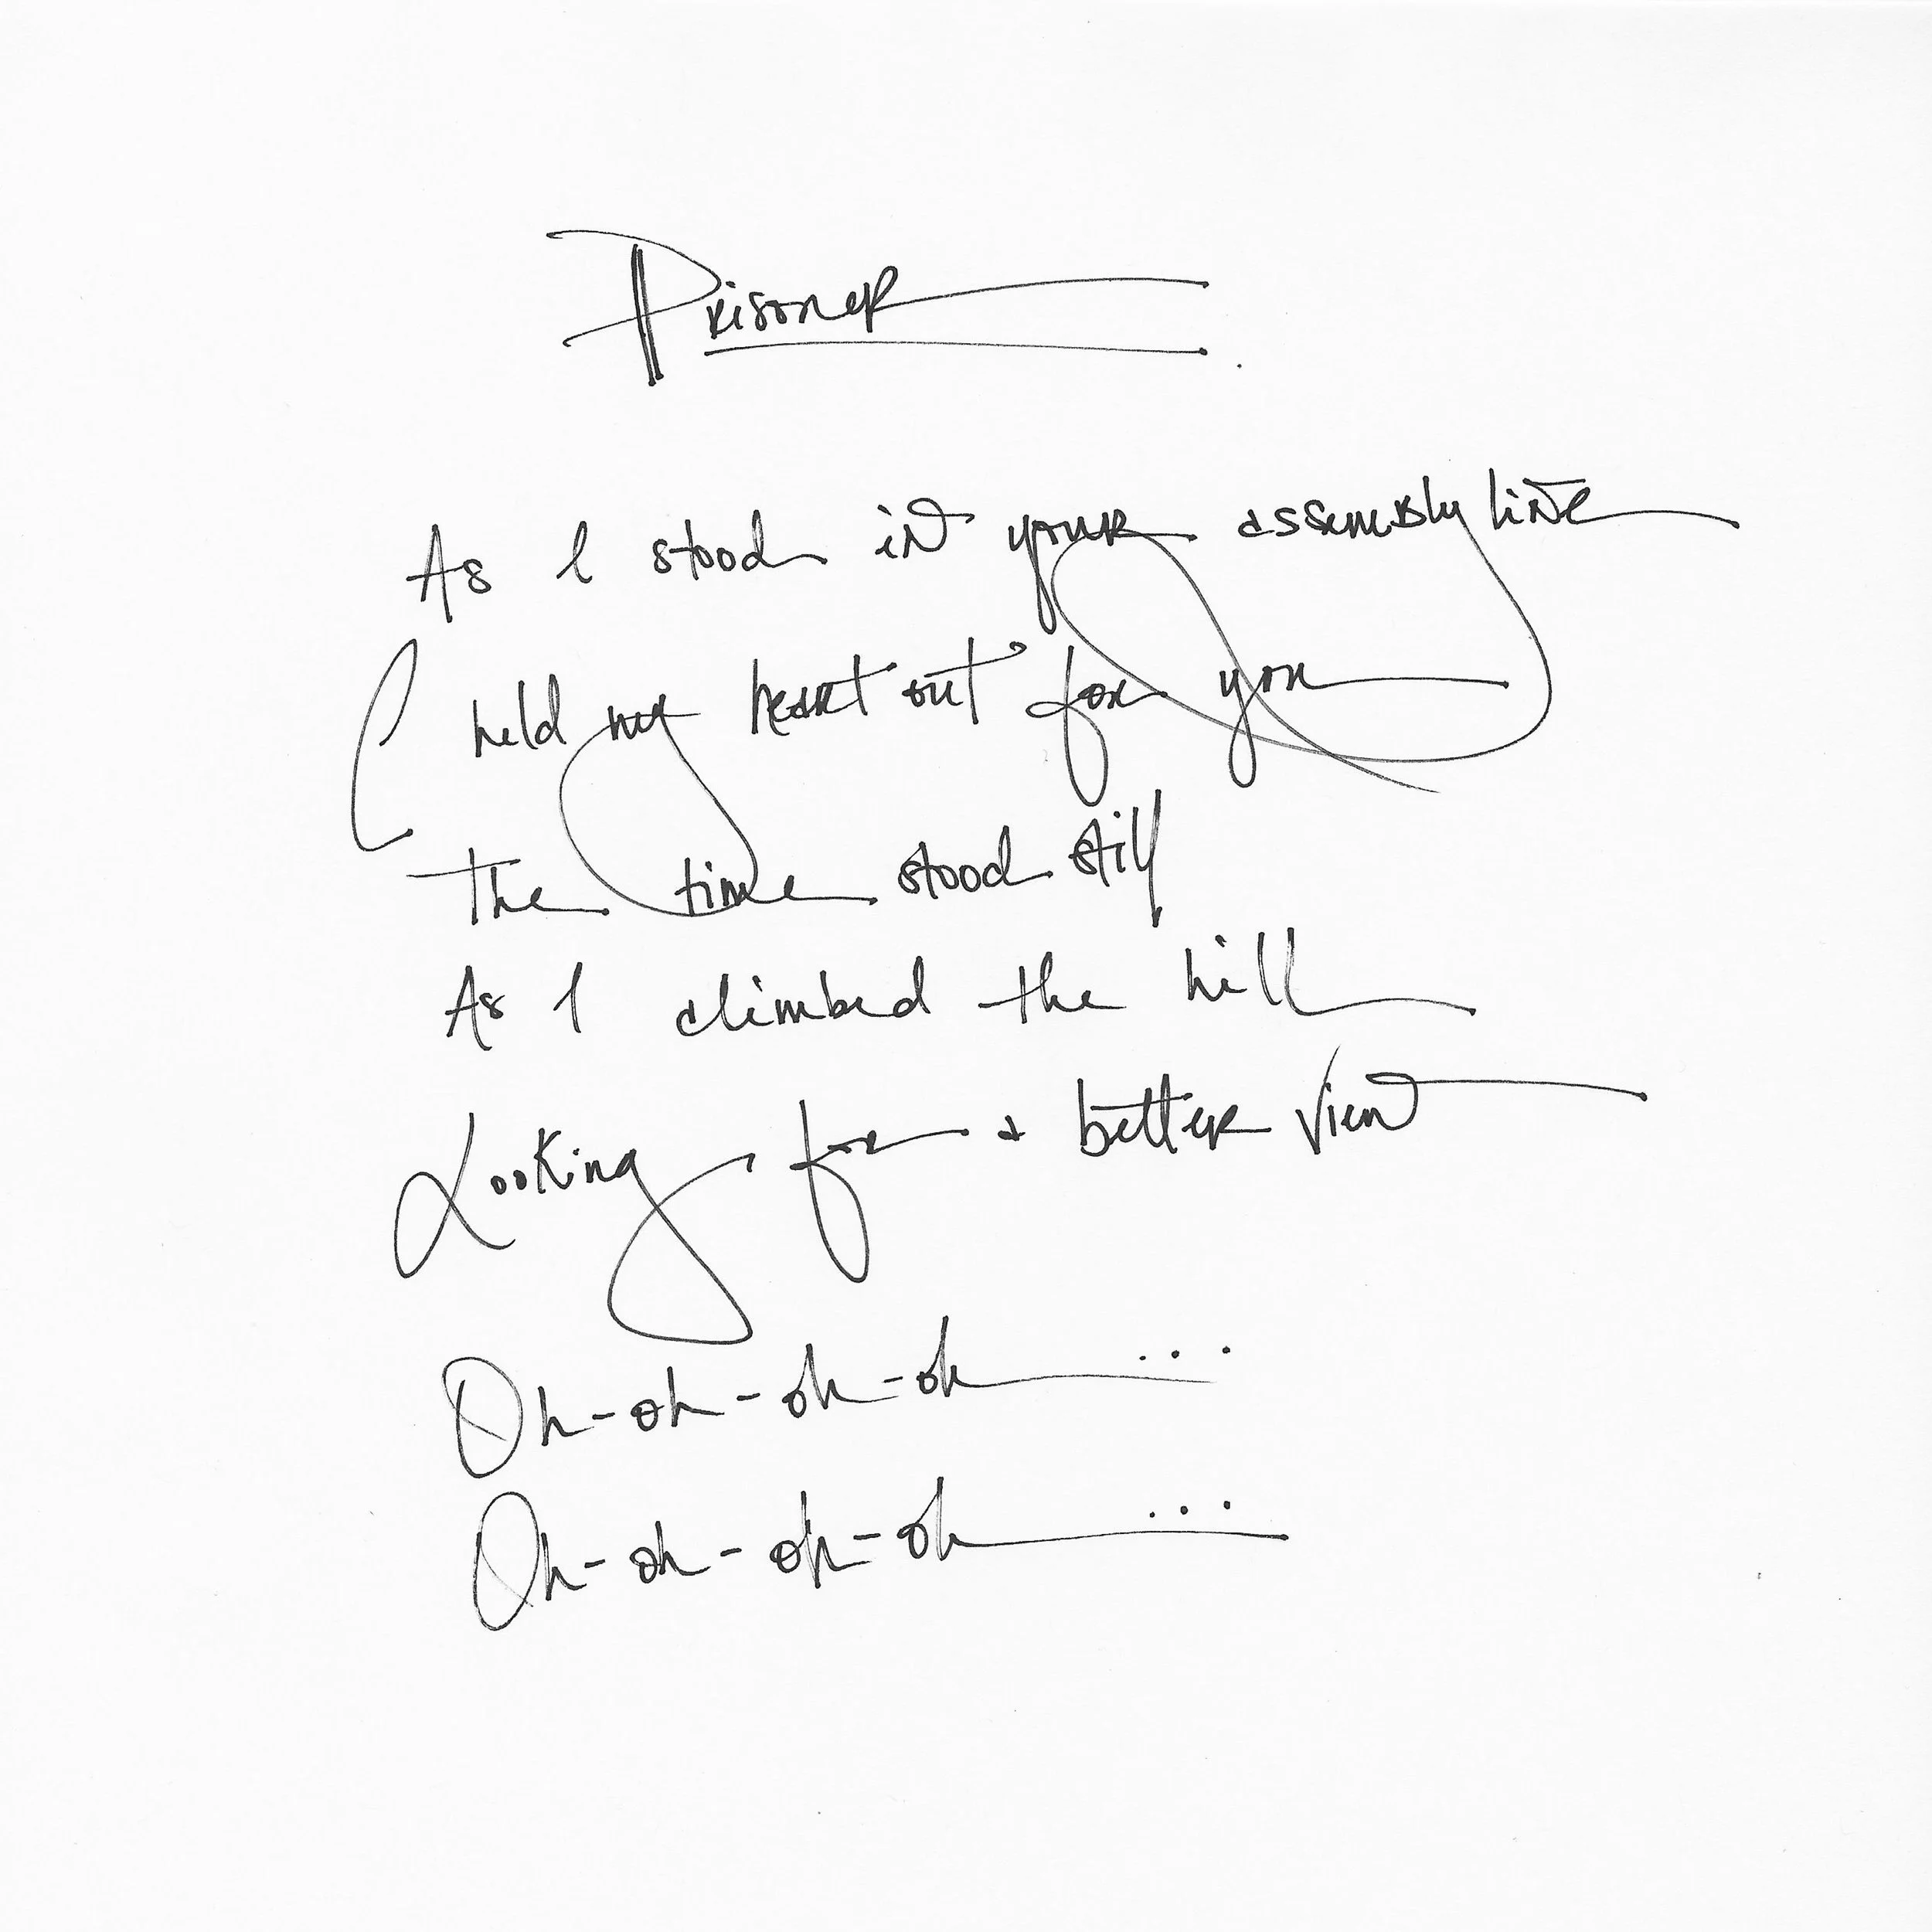 Prisoner
As I stood in your assembly line
I held my heart out for you
The time stood still
As I climbed the hill
Looking for a better view
Oh-oh-oh-oh...
Oh-oh-oh-oh...